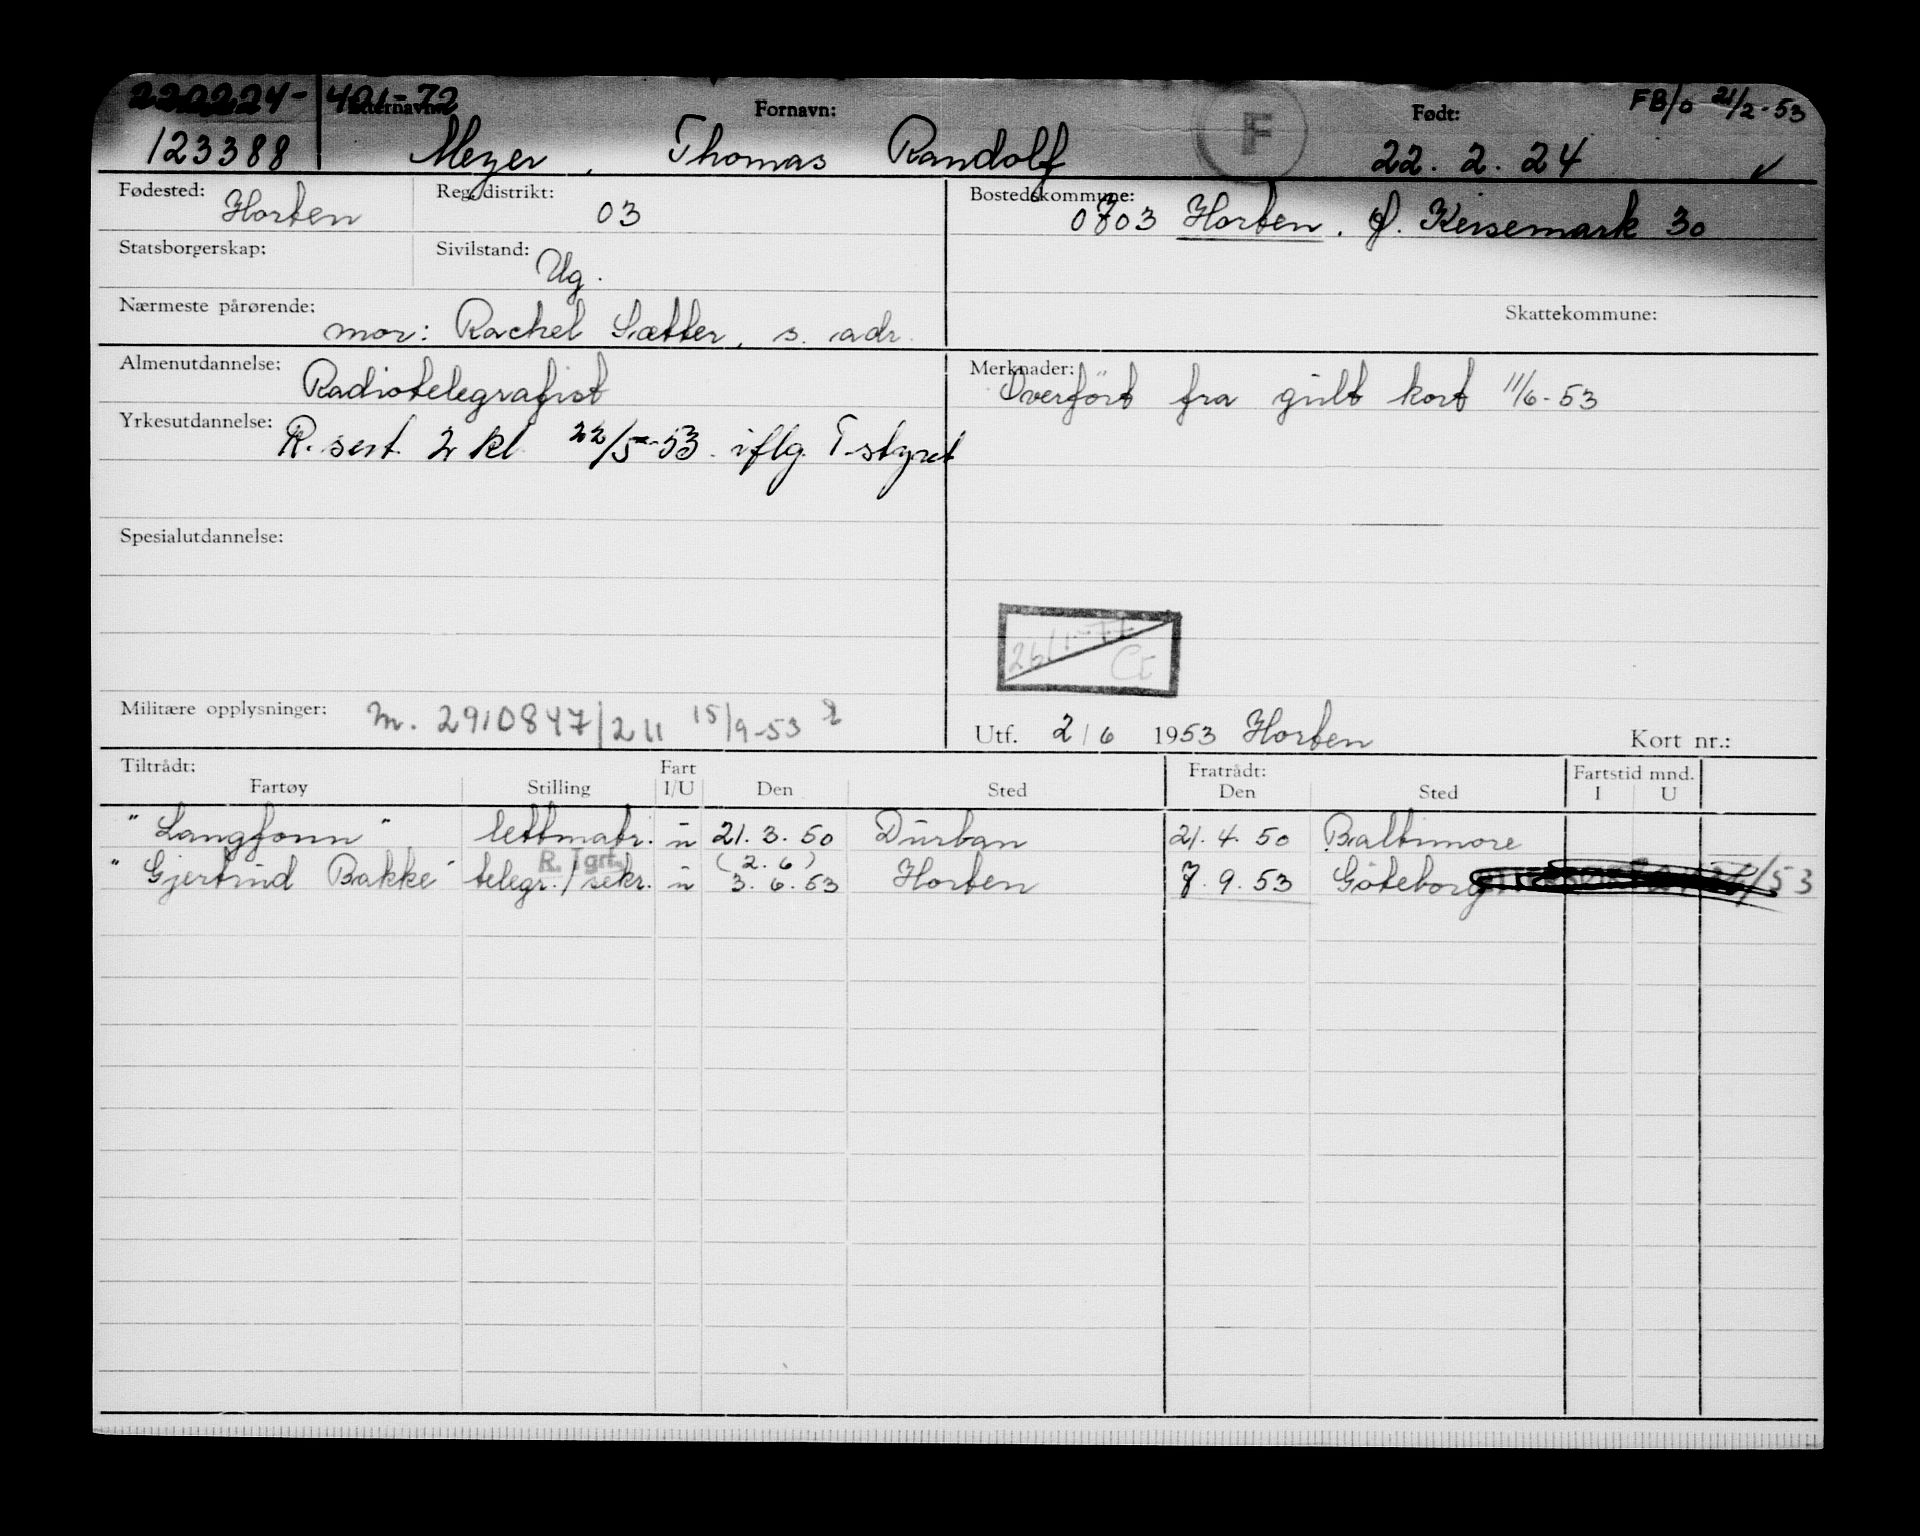 220224- 401-72
Etternavn: Fornavn: F Født: FB/o 21/2-53
123388 Meyer, Thomas Randolf 22. 2. 24 ✓
Fødested: Horten Reg. distrikt: 03 Bostedskommune: 0703 Horten. Ø. Keisemark 30
Statsborgerskap: Sivilstand: Ug.
Nærmeste pårørende: mor: Rachel Sætter, s. adr. Skattekommune:
Almenutdannelse: Radiotelegrafist Merknader: Overført fra gult kort 11/6-53
Yrkesutdannelse: R. sert. 2 kl 22/5-53. iflg. T-styret
Spesialutdannelse:
26/1-77 CE
Militære opplysninger: M. 2910847/211 15/9-53
Utf. 2/6 1953 Horten Kort nr.:
Tiltrådt: Fart Fratrådt: Fartstid mnd.
Fartøy Stilling I/U Den Sted Den Sted I U
"Langfonn" lettmatr. u 21. 3. 50 Durban 21. 4. 50 Baltimore
R. Tgrf. (2. 6)
"Gjertrud Bakke" telegr./sekr. u 3. 6. 53 Horten 7. 9. 53 Göteborg /53